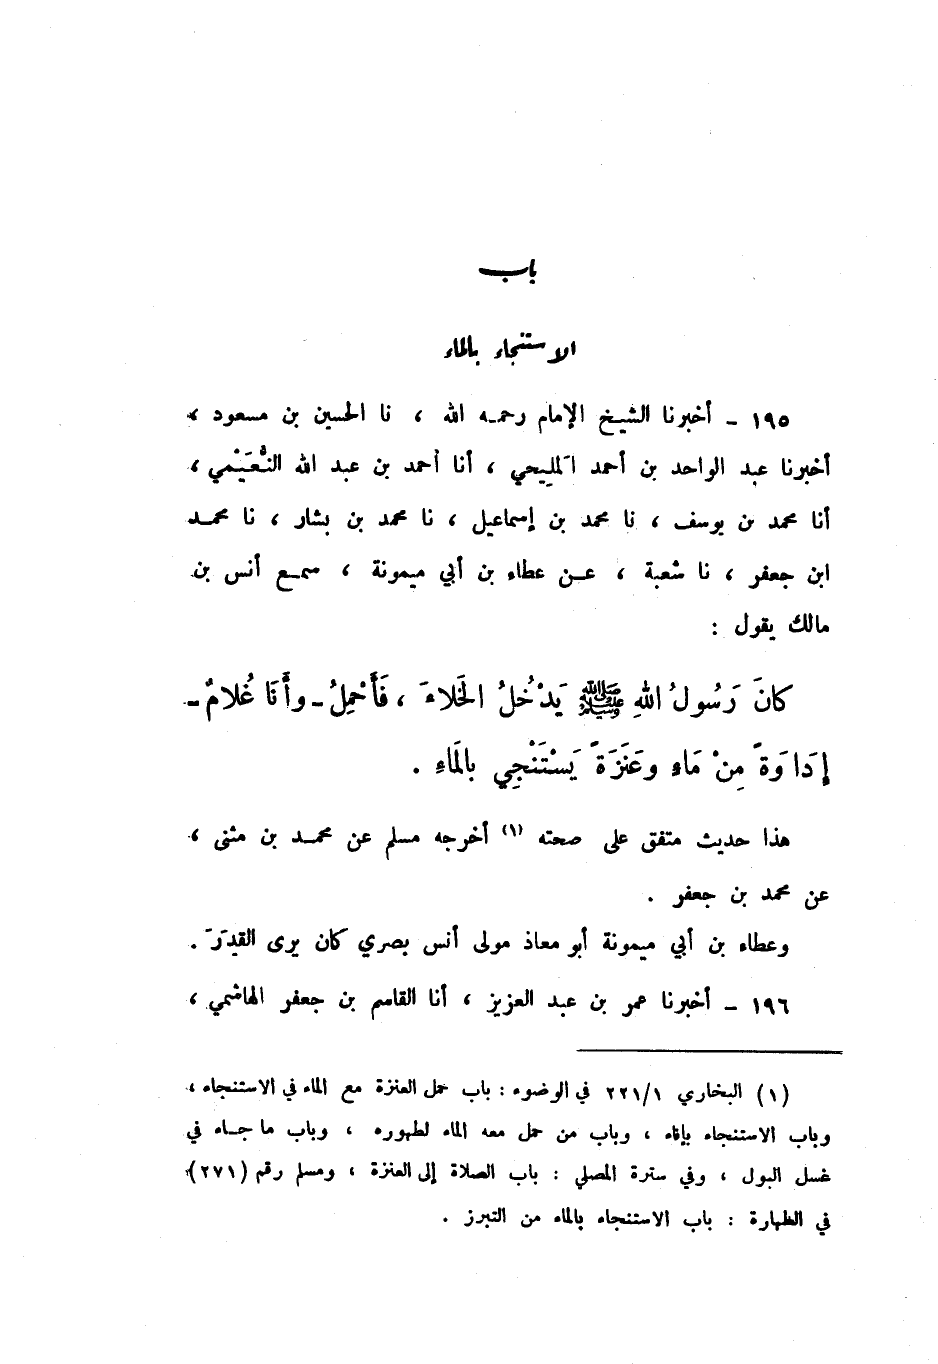 باب
الاستنجاء بالماء
١٩٥ ـ أخبرنا الشيخ الإمام رحمه الله ، نا الحسين بن مسعود ،
أخبرنا عبد الواحد بن أحمد المَليحي ، أنا أحمد بن عبد الله النُّعَيْمي ،
أنا محمد بن يوسف ، نا محمد بن إسماعيل ، نا محمد بن بشار ، نا محمد
ابن جعفر ، نا شعبة ، عن عطاء بن أبي ميمونة ، سمع أنس بن
مالك يقول :
كانَ رَسُولُ اللهِ ﷺ يَدْخُلُ الخَلاءَ ، فَأَحْمِلُ ـ وأَنَا غُلامٌ ـ
إدَاوَةً مِنْ مَاءٍ وعَنَزَةً يَسْتَنْجِي بالمَاءِ .
هذا حديث متفق على صحته (١) أخرجه مسلم عن محمد بن مثنى ،
عن محمد بن جعفر .
وعطاء بن أبي ميمونة أبو معاذ مولى أنس بصري كان يرى القدَرَ .
١٩٦ ـ أخبرنا عمر بن عبد العزيز ، أنا القاسم بن جعفر الهاشمي ،
(١) البخاري ٢٢١/١ في الوضوء : باب حمل العنزة مع الماء في الاستنجاء ،
وباب الاستنجاء بإناء ، وباب من حمل معه الماء لطهوره ، وباب ما جاء في
غسل البول ، وفي سترة المصلي : باب الصلاة إلى العنزة ، ومسلم رقم (٢٧١)
في الطهارة : باب الاستنجاء بالماء من التبرز .